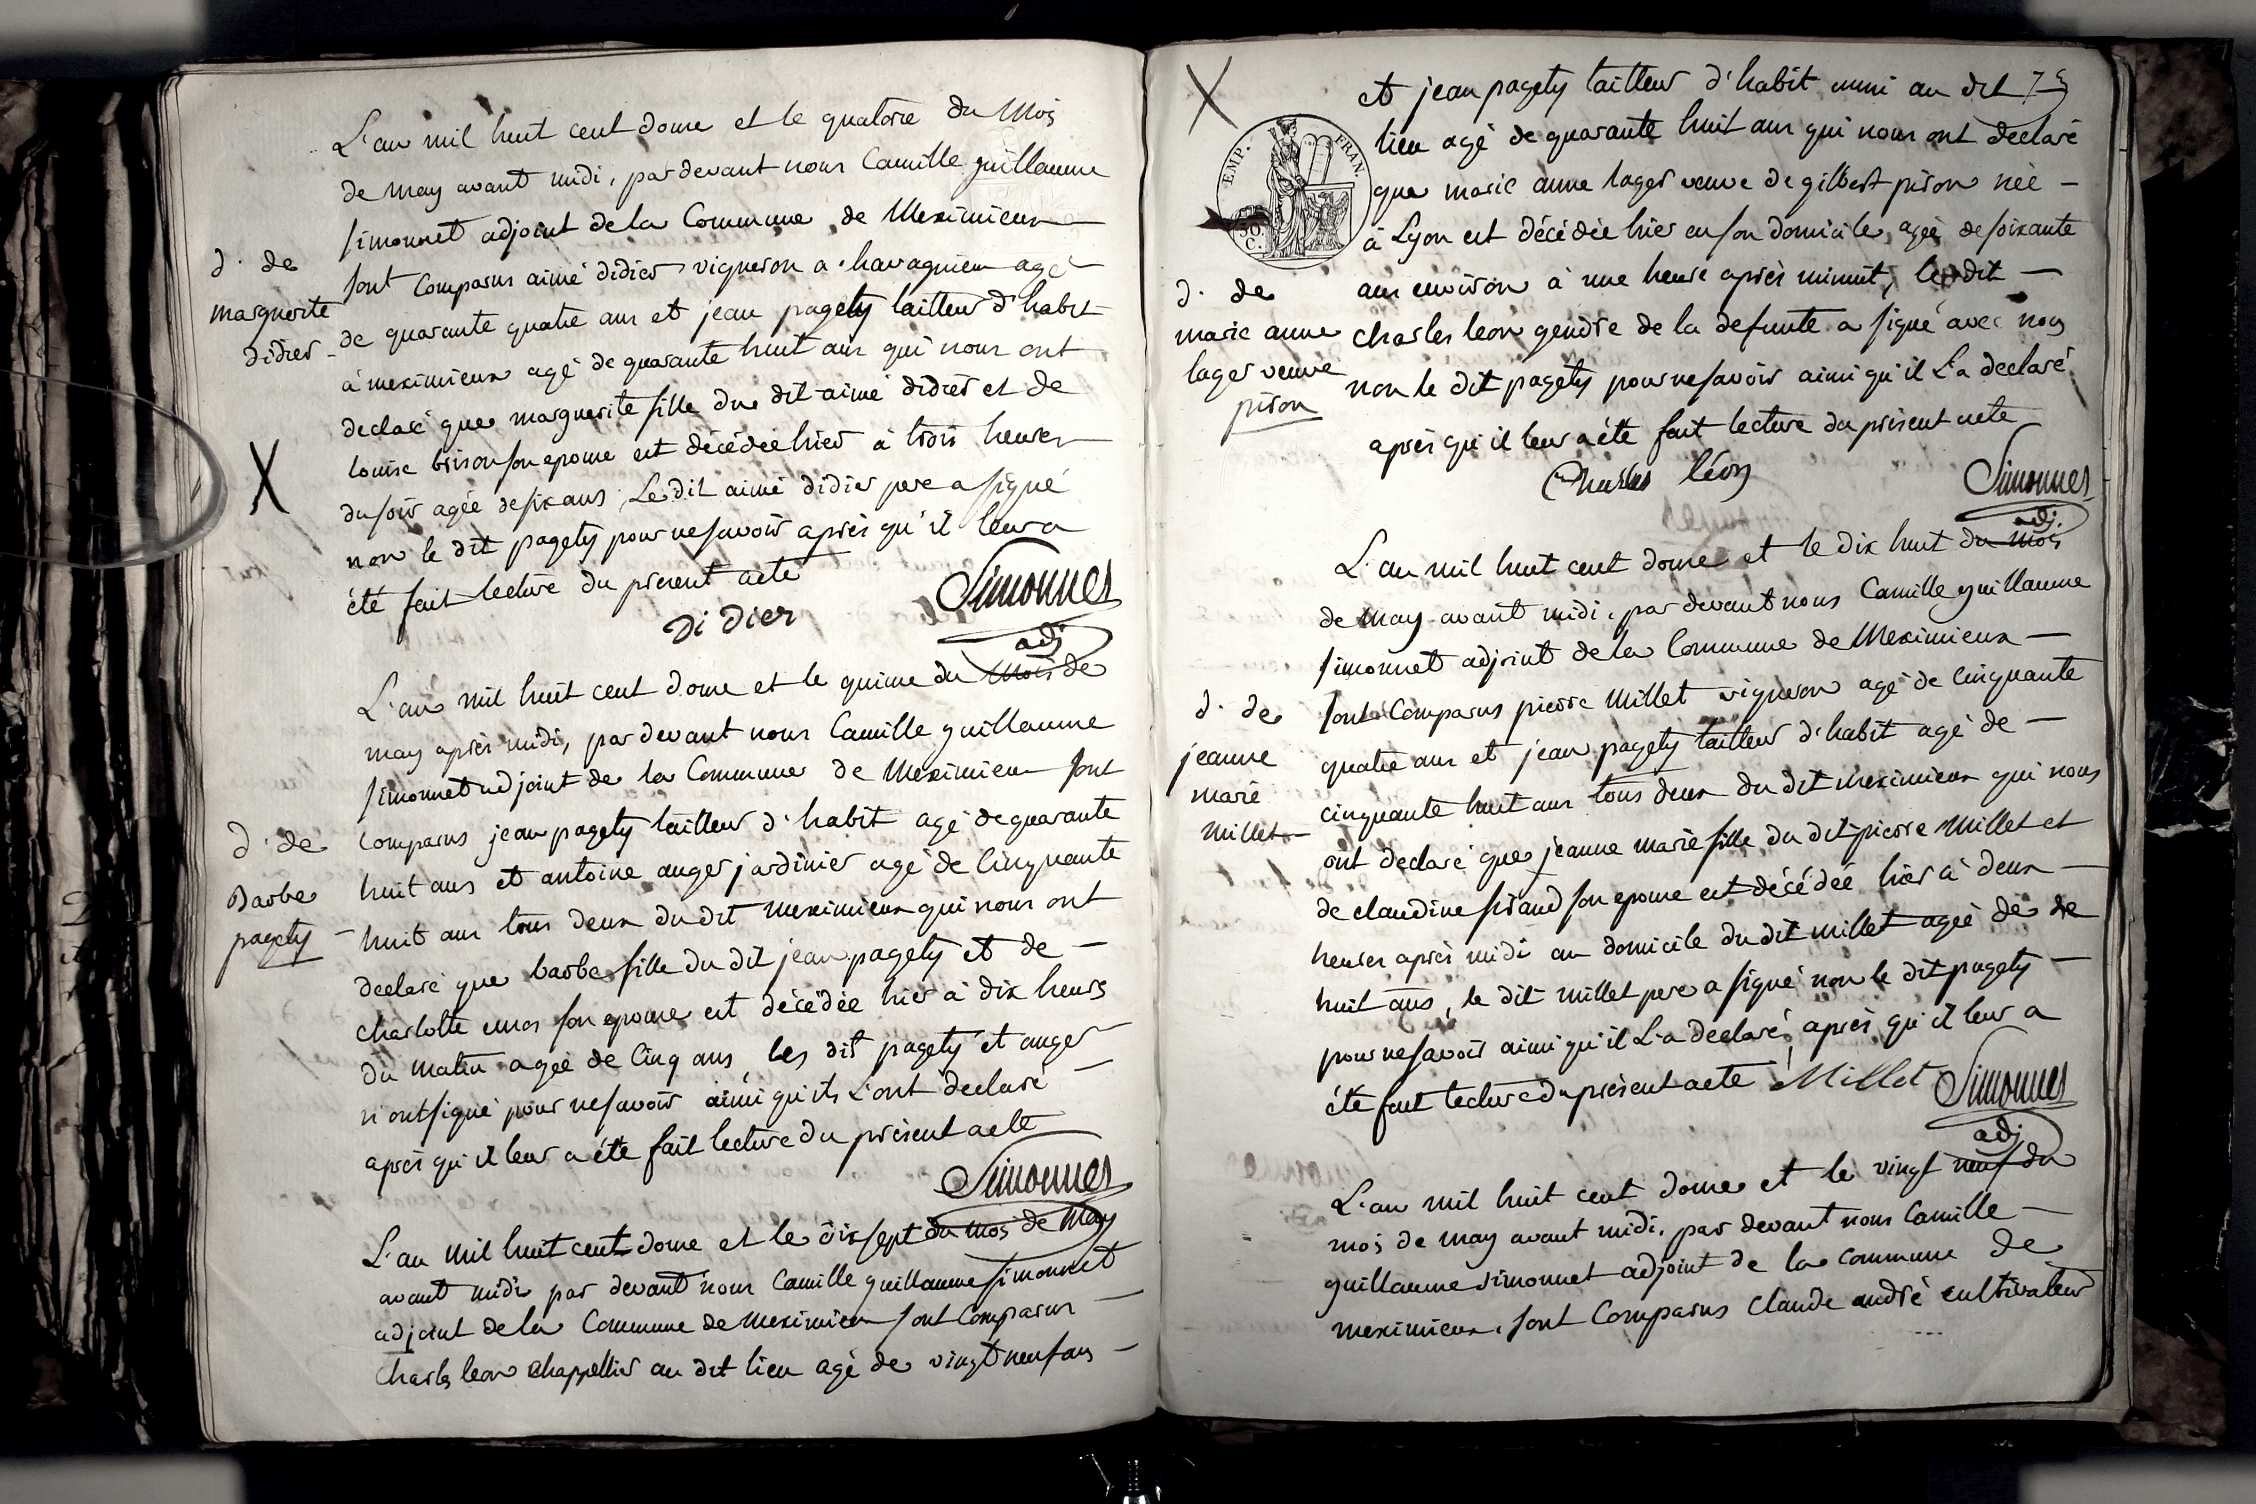 L'an mil huit cent douze et le quatorze du Mois
de may avant midi, par devant nous Camille guillaume
simonnet adjoint de la Commune de Meximieux
sont Comparus aimé didier vigneron a chavagnieu agé
de quarante quatre ans et jean pagety tailleur d'habit
à meximieux agé de quarante huit ans qui nous ont
declaré que marguerite fille du dit aimé didier et de
louise brison son epouse est décédée hier à trois heures
du soir agée de six ans, Le dit aimé didier pere a signé
non le dit pagety pour ne savoir après qu'il leur a
été fait lecture du present acte
Didier
Simonnet
adj
d. de
marguerite
didier
X
L'an mil huit cent douze et le quinze du Mois de
may après midi, par devant nous Camille guillaume
simonnet adjoint de la Commune de Meximieux sont
comparus jean pagety tailleur d'habit agé de quarante
huit ans et antoine auger jardinier agé de Cinquante
huit ans tous deux du dit Meximieux qui nous ont
declaré que barbe fille du dit jean pagety et de
charlotte son epouse est décédée hier à dix heures
du matin agée de Cinq ans, les dit pagety et auger
n'ont signé pour ne savoir ainsi qu'ils L'ont declaré
après qu'il leur a été fait lecture du présent acte
Simonnet
d. de
Barbe
pagety
L'an mil huit cent douze et le dix sept du mois de May
avant midi par devant nous Camille guillaume simonnet
adjoint de la Commune de Meximieux sont Comparus
Charles leon Chappellier au dit lieu agé de vingt neuf ans
et jean pagety tailleur d'habit aussi au dit
lieu agé de quarante huit ans qui nous ont declaré
que marie anne lager veuve de gilbert pison née
à Lyon est décédée hier en son domicile, agée de soixante
ans environ à une heure après minuit, le dit
charles leon gendre de la defunte a signé avec nous
non le dit pagety pour ne savoir ainsi qu'il L'a declaré
après qu'il leur a été fait lecture du présent acte
Charles léon
Simonnet
adj.
X
EMP. FRAN.
50.
C.
d. de
marie anne
lager veuve
pison
L'an mil huit cent douze et le dix huit du Mois
de May avant midi, par devant nous Camille guillaume
simonnet adjoint de la Commune de Meximieux
sont Comparus pierre Millet vigneron agé de Cinquante
quatre ans et jean pagety tailleur d'habit agé de
cinquante huit ans tous deux du dit meximieux qui nous
ont declaré que jeanne marie fille du dit pierre Millet et
de claudine sirand son epouse est décédée hier à deux
heures après midi au domicile du dit millet agée de
huit ans, le dit millet pere a signé non le dit pagety
pour ne savoir ainsi qu'il L'a declaré, après qu'il leur a
été fait lecture du présent acte Millet
Simonnet
adj
d. de
jeanne
marie
Millet
L'an mil huit cent douze et le vingt neuf du
mois de may avant midi, par devant nous Camille
guillaume simonnet adjoint de la commune de
meximieux, sont Comparus Claude andré cultivateur